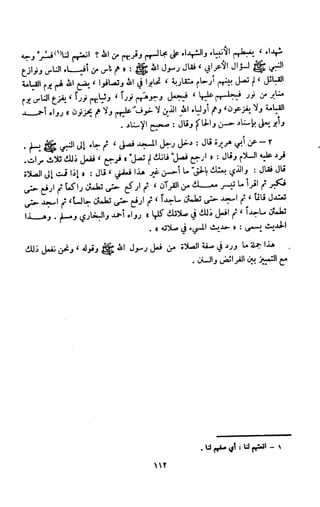 شهداء ، يغبطهم الأنبياء والشهداء على مجالسهم وقربهم من الله ؟ انعتهم لنا(١) فسر وجه
النبي ﷺ لسؤال الأعرابي ، فقال رسول الله ﷺ : « هم ناس من أفياء الناس ونوازع
القبائل ، لم تصل بينهم أرحام متقاربة ، تحابوا في الله وتصافوا ، يضع الله لهم يوم القيامة
منابر من نور فيجلسهم عليها ، فيجعل وجوههم نوراً ، وثيابهم نوراً ، يفزع الناس يوم
القيامة ولا يفزعون ، وهم أولياء الله الذين لا خوف عليهم ولا هم يحزنون » رواه أحمد
وأبو يعلى بإسناد حسن والحاكم وقال : صحيح الإسناد .
٢ – عن أبي هريرة قال : دخل رجل المسجد فصلى ، ثم جاء إلى النبي ﷺ يسلم .
فرد عليه السلام وقال : « ارجع فصل فانك لم تصل » فرجع ، ففعل ذلك ثلاث مرات .
قال فقال : والذي بعثك بالحق ما أحسن غير هذا فعلمني ، قال : « إذا قمت إلى الصلاة
فكبر ثم اقرأ ما تيسر معك من القرآن ، ثم اركع حتى تطمئن راكعاً ثم ارفع حتى
تعتدل قائماً ، ثم اسجد حتى تطمئن ساجداً ، ثم ارفع حتى تطمئن جالساً ، ثم اسجد حتى
تطمئن ساجداً ، ثم افعل ذلك في صلاتك كلها » رواه أحمد والبخاري ومسلم . وهذا
الحديث يسمى : « حديث المسيء في صلاته » .
هذا جملة ما ورد في صفة الصلاة من فعل رسول الله ﷺ وقوله ، ونحن نفصل ذلك
مع التمييز بين الفرائض والسنن .
١ – انعتهم لنا : أي صفهم لنا .
١١٢